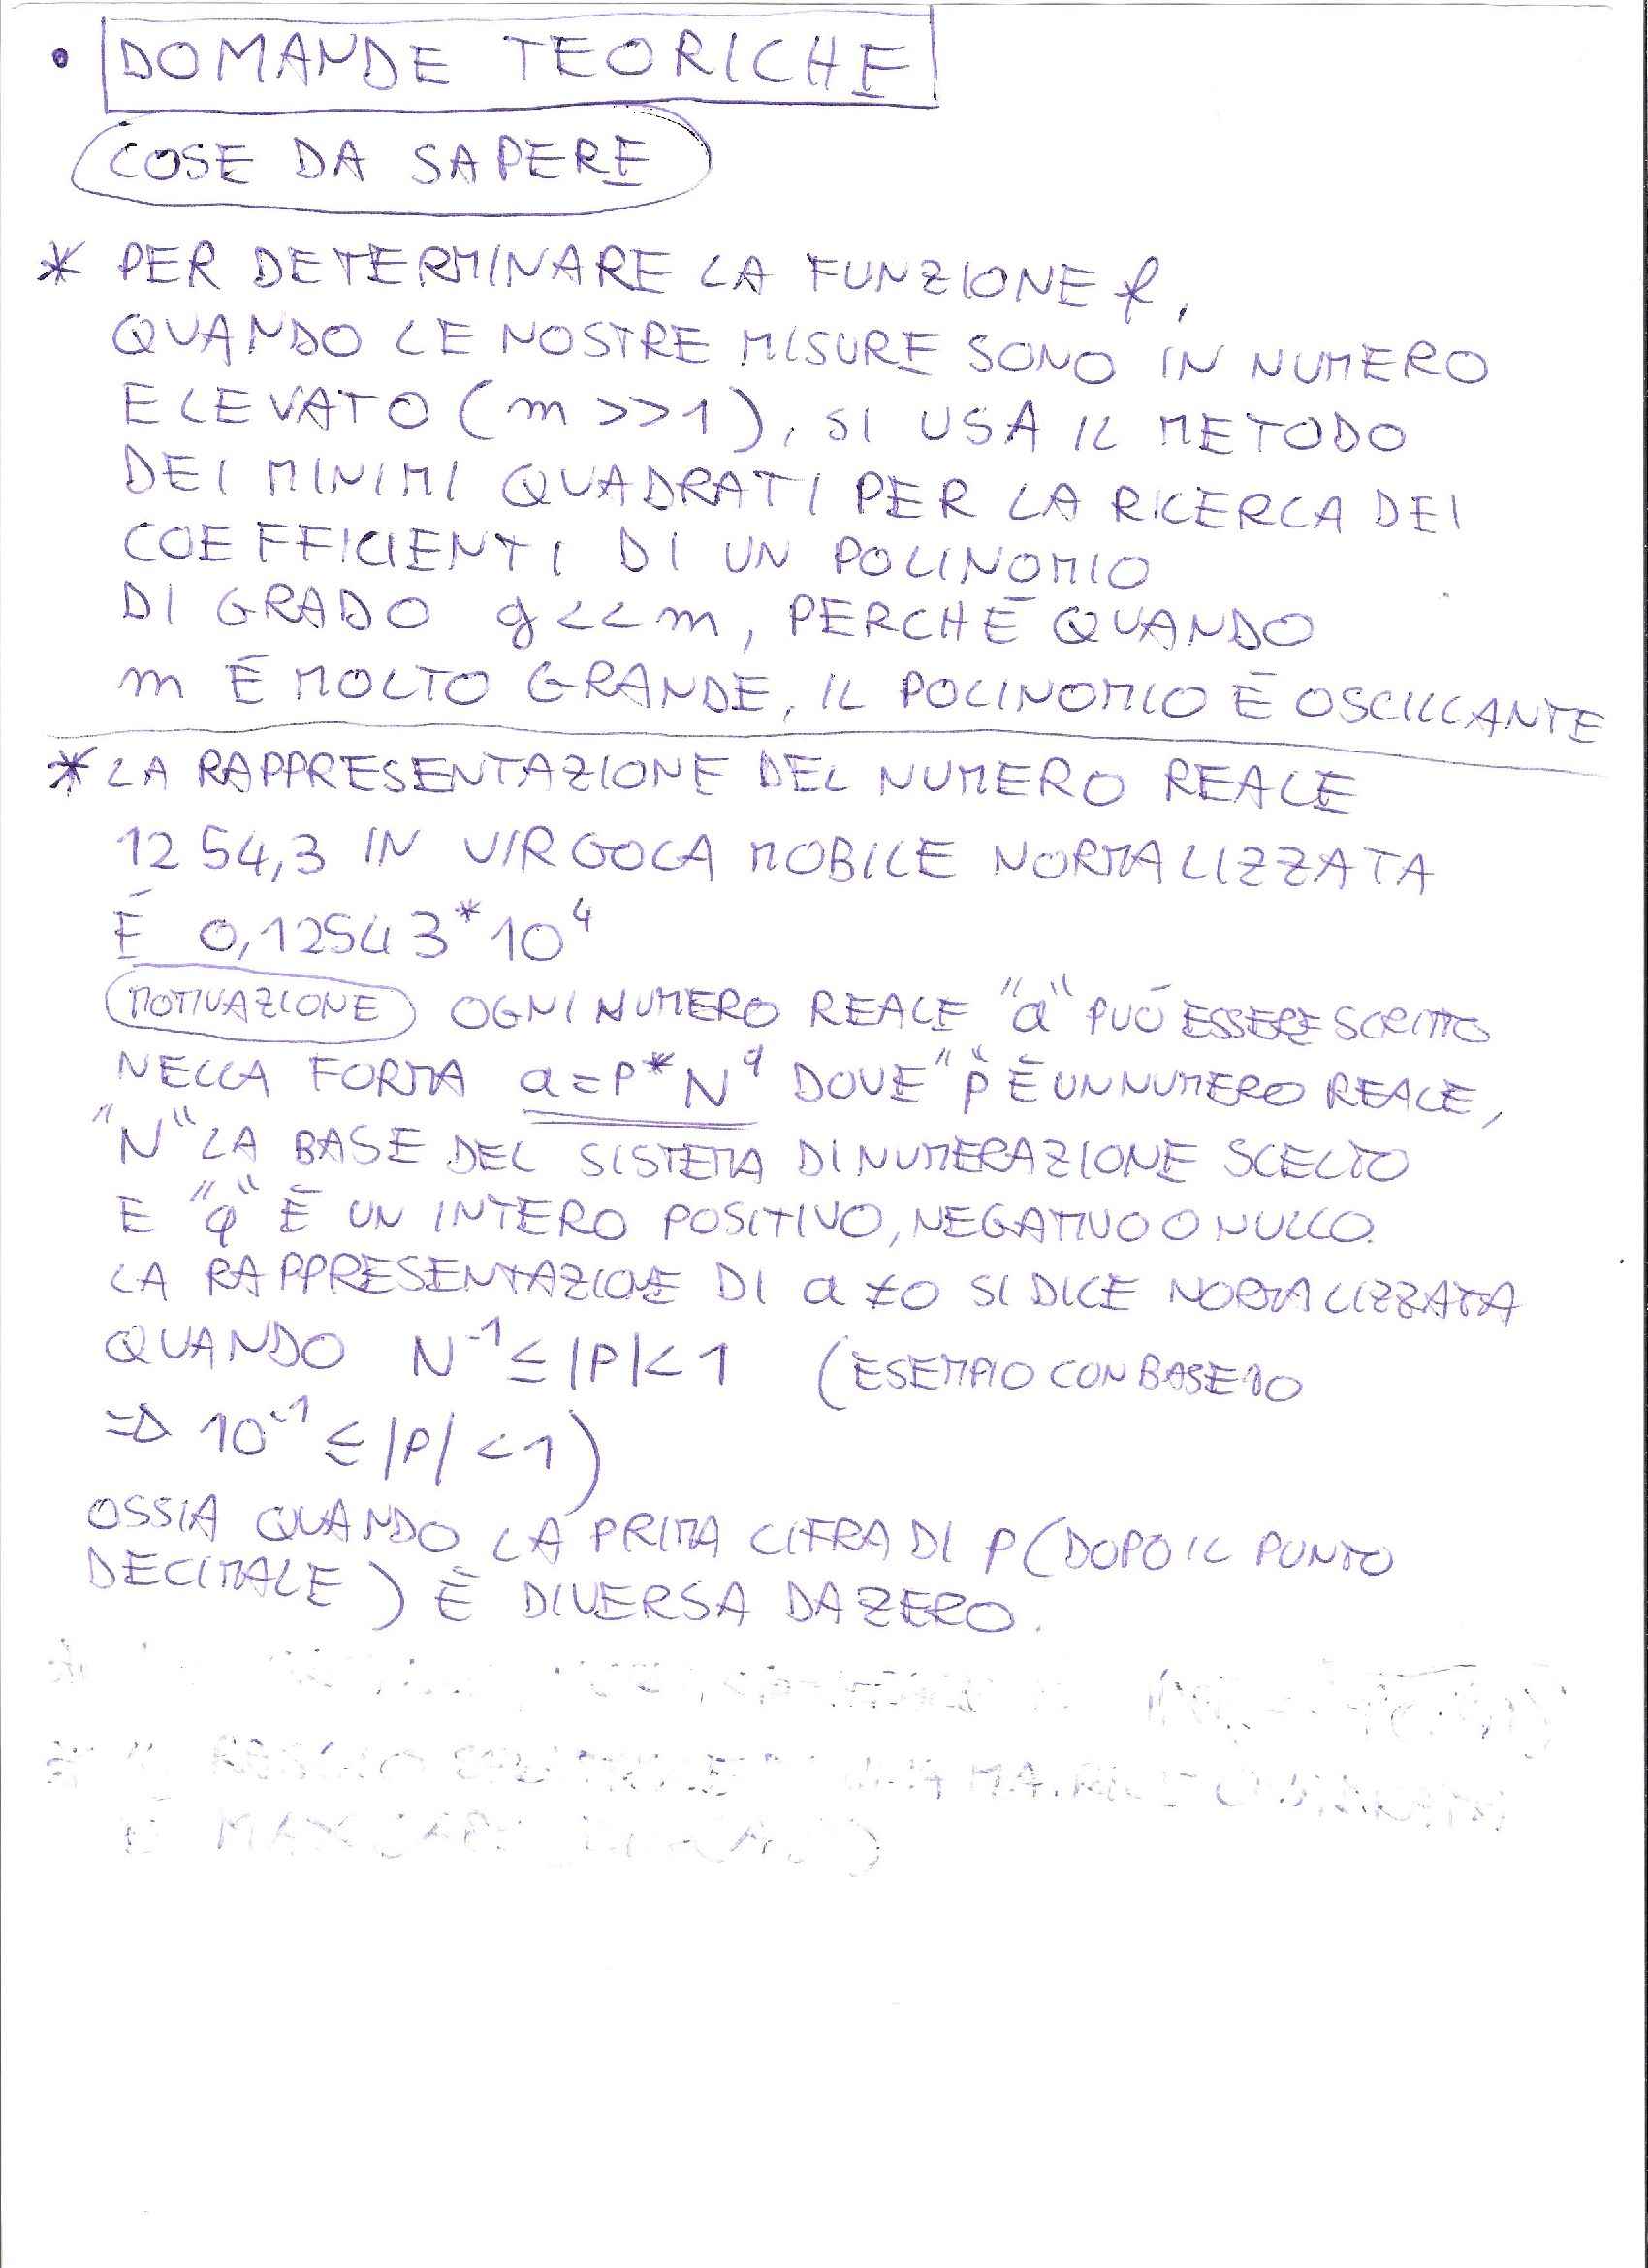 • DOMANDE TEORICHE
COSE DA SAPERE
* PER DETERMINARE LA FUNZIONE f,
QUANDO LE NOSTRE MISURE SONO IN NUMERO
ELEVATO (m >>1), SI USA IL METODO
DEI MINIMI QUADRATI PER LA RICERCA DEI
COEFFICIENTI DI UN POLINOMIO
DI GRADO g<<m, PERCHÉ QUANDO
m É MOLTO GRANDE, IL POLINOMIO É OSCILLANTE
* LA RAPPRESENTAZIONE DEL NUMERO REALE
1254,3 IN VIRGOLA MOBILE NORMALIZZATA
É 0,12543*10⁴
MOTIVAZIONE OGNI NUMERO REALE "a" PUÓ ESSERE SCRITTO
NELLA FORMA a=P*N^q DOVE "P" É UN NUMERO REALE,
"N" LA BASE DEL SISTEMA DI NUMERAZIONE SCELTO
E "q" É UN INTERO POSITIVO, NEGATIVO O NULLO.
LA RAPPRESENTAZIONE DI a≠0 SI DICE NORMALIZZATA
QUANDO N⁻¹≤|P|<1 (ESEMPIO CON BASE 10
=> 10⁻¹ ≤ |P| <1)
OSSIA QUANDO LA PRIMA CIFRA DI P (DOPO IL PUNTO
DECIMALE) É DIVERSA DA ZERO.